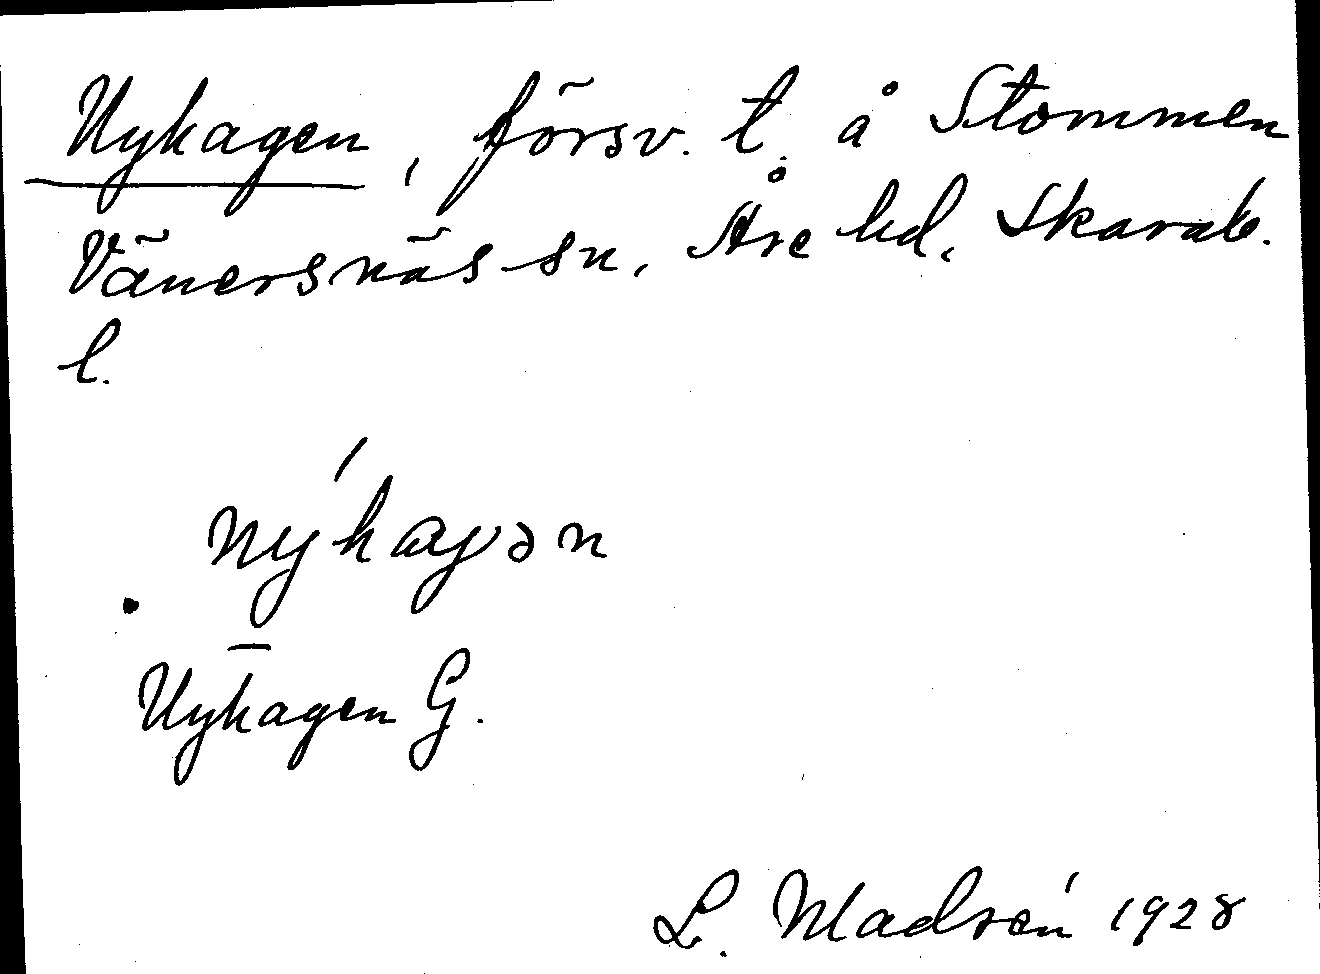 Nyhagen, försv. t. å Stommen
Vänersnäs sn, Åse hd, Skarab.
l.
nýhagən
Nyhagen G.
L. Madsén 1928